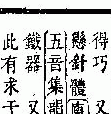 得巧又
懸針
五音集韻
鐵器又
此有求于